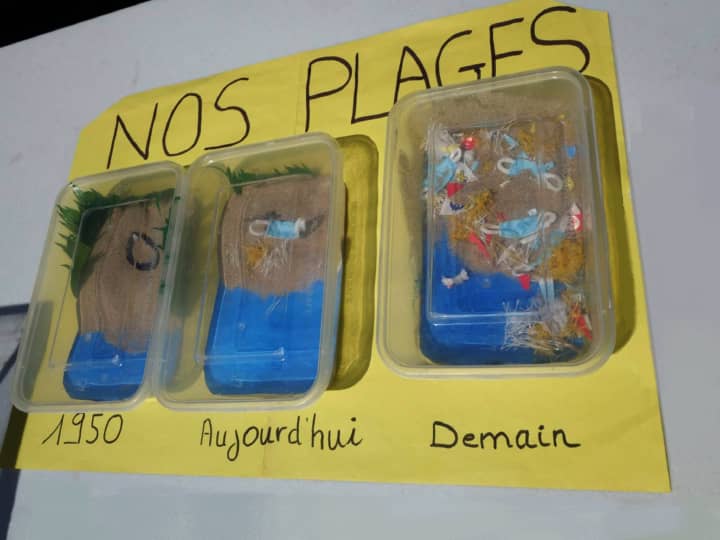 NOS PLAGES
1950 Aujourd'hui Demain